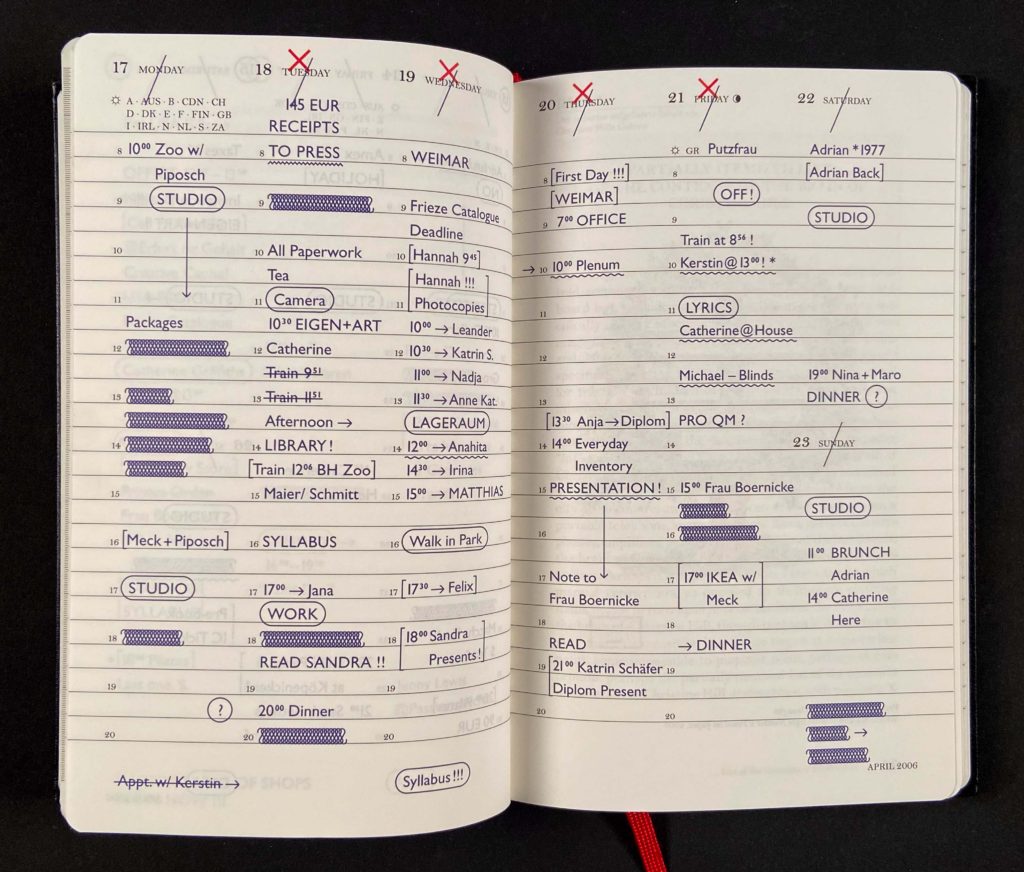 17 MONDAY
A · AUS · B · CDN · CH
D · DK · E · F · FIN · GB
I · IRL · N · NL · S · ZA
8 10⁰⁰ Zoo w/
Piposch
9 STUDIO
10
11
Packages
12
13
14
15
16 [Meck + Piposch]
17 STUDIO
18
19
?
20
Appt. w/ Kerstin →
18 TUESDAY
145 EUR
RECEIPTS
8 TO PRESS
9
10 All Paperwork
Tea
11 Camera
10³⁰ EIGEN+ART
12 Catherine
Train 9⁵¹
13 Train 11⁵¹
Afternoon →
14 LIBRARY !
[Train 12⁰⁶ BH Zoo]
15 Maier/ Schmitt
16 SYLLABUS
17 17⁰⁰ → Jana
WORK
18
READ SANDRA !!
19
20⁰⁰ Dinner
20
19 WEDNESDAY
8 WEIMAR
9 Frieze Catalogue
Deadline
10 [Hannah 9⁴⁵]
[Hannah !!!
11 Photocopies]
10⁰⁰ → Leander
12 10³⁰ → Katrin S.
11⁰⁰ → Nadja
13 11³⁰ → Anne Kat.
LAGERAUM
14 12⁰⁰ → Anahita
14³⁰ → Irina
15 15⁰⁰ → MATTHIAS
16 Walk in Park
17 [17³⁰ → Felix]
18 [18⁰⁰ Sandra
Presents !]
19
20
Syllabus !!!
20 THURSDAY
8 [First Day !!!]
[WEIMAR]
9 7⁰⁰ OFFICE
→ 10 10⁰⁰ Plenum
11
12
13
[13³⁰ Anja → Diplom]
14 14⁰⁰ Everyday
Inventory
15 PRESENTATION !
16
17 Note to
Frau Boernicke
18
READ
19 [21⁰⁰ Katrin Schäfer
Diplom Present
20
21 FRIDAY
GR Putzfrau
8
OFF!
9
Train at 8⁵⁶ !
10 Kerstin @ 13⁰⁰! *
11 LYRICS
Catherine@House
12
Michael – Blinds
13
PRO QM ?
14
15 15⁰⁰ Frau Boernicke
16
17 [17⁰⁰ IKEA w/
Meck]
18
→ DINNER
19
20
22 SATURDAY
Adrian * 1977
[Adrian Back]
STUDIO
19⁰⁰ Nina + Maro
DINNER ?
23 SUNDAY
STUDIO
11⁰⁰ BRUNCH
Adrian
14⁰⁰ Catherine
Here
→
APRIL 2006